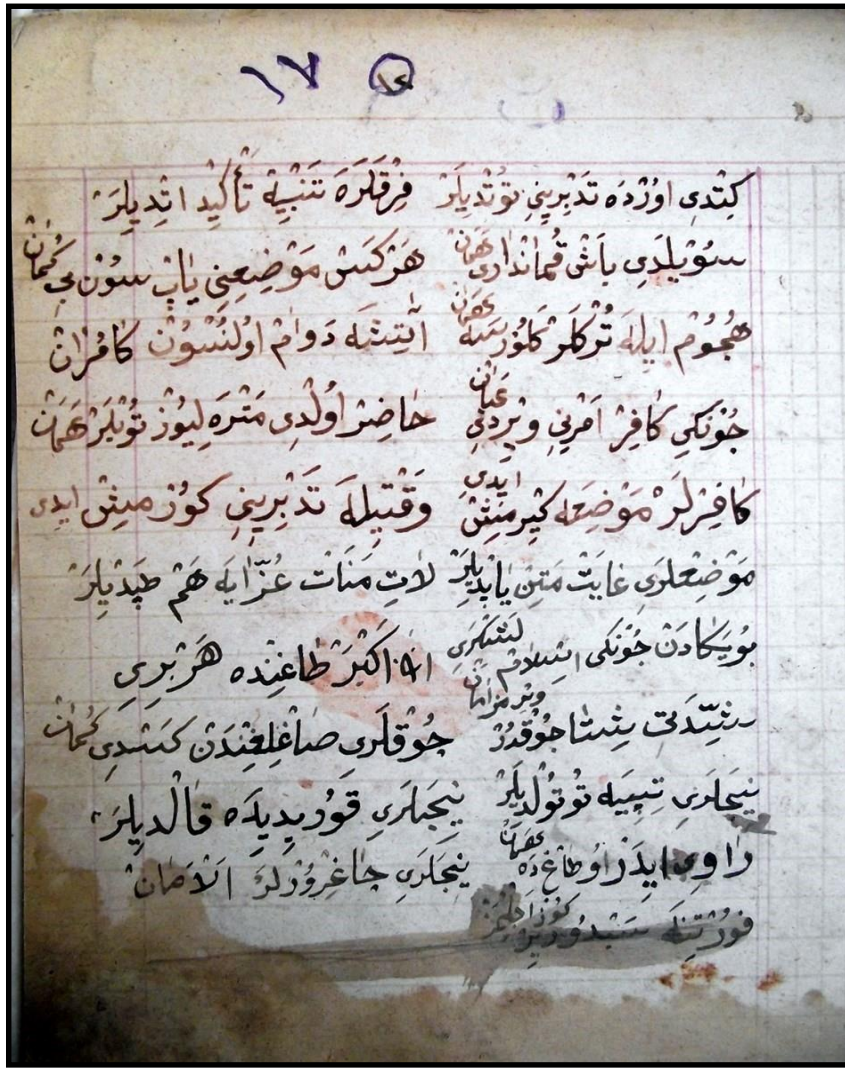 ١٧ ١٤
كِتْدِى اوُرْدَه تَدْبِرِينِي توُتْدِيلَرْ فِرْقَلَرَه تَنْبِيهْ تَأْكِيدِ اتْدِيلَرْ
سوُيْلَدِى بَاشْ قُمَانْدَارِى هَمَانْ هَرْكَسْ مَوْضِعِنِي يَاپْ سوُنْ بِي كُمَانْ
هُجوُمْ ايلَه تُرْكلَرْ كَلوُرْسَه اَتِشَه دَوَامْ اوُلُنْسوُنْ كَافِرَانْ
جُونْكِي كَافِرْ اَمْرِنِي وِيرْدِي عَيَانْ حَاضِرْ اوُلْدِى مَتْرَه لِيوُزْ توُپْلَرْ هَمَانْ
كَافِرْلَرْ مَوْضِعَه كِيرْمِشْ ايدِى وَقْتِيلَه تَدْبِرِينِي كوُرْمِشْ ايدِى
مَوْضِعلَرِى غَايَتْ مَتِنْ يَاپْدِيلَرْ لَاتِ مَنَاتْ عُزَّايَه هَمْ طَپْدِيلَرْ
بوُيَكَادَنْ جُونْكِى اسْلَامْ لَشْكَرِى اَللهُ اَكْبَرْ طَاغِنْدَه هَرْبِرِي
شِدَّتِ شِتَا جوُقْدُرْ جوُقْلَرِي صَاغْلِغِنْدَنْ كَسْدِى كُمَانْ
نِيجَلَرِي تِيپِيَه توُتوُلْدِيلَرْ نِيجَلَرِي قوُرِيدِيدَه قَالْدِيلَرْ
رَاوِي ايدَرْ اوُ طَاغْ دَه نِيجَلَرِي جَاغِروُرْلَرْ اَلْاَمَانْ
فوُرْتِنَه